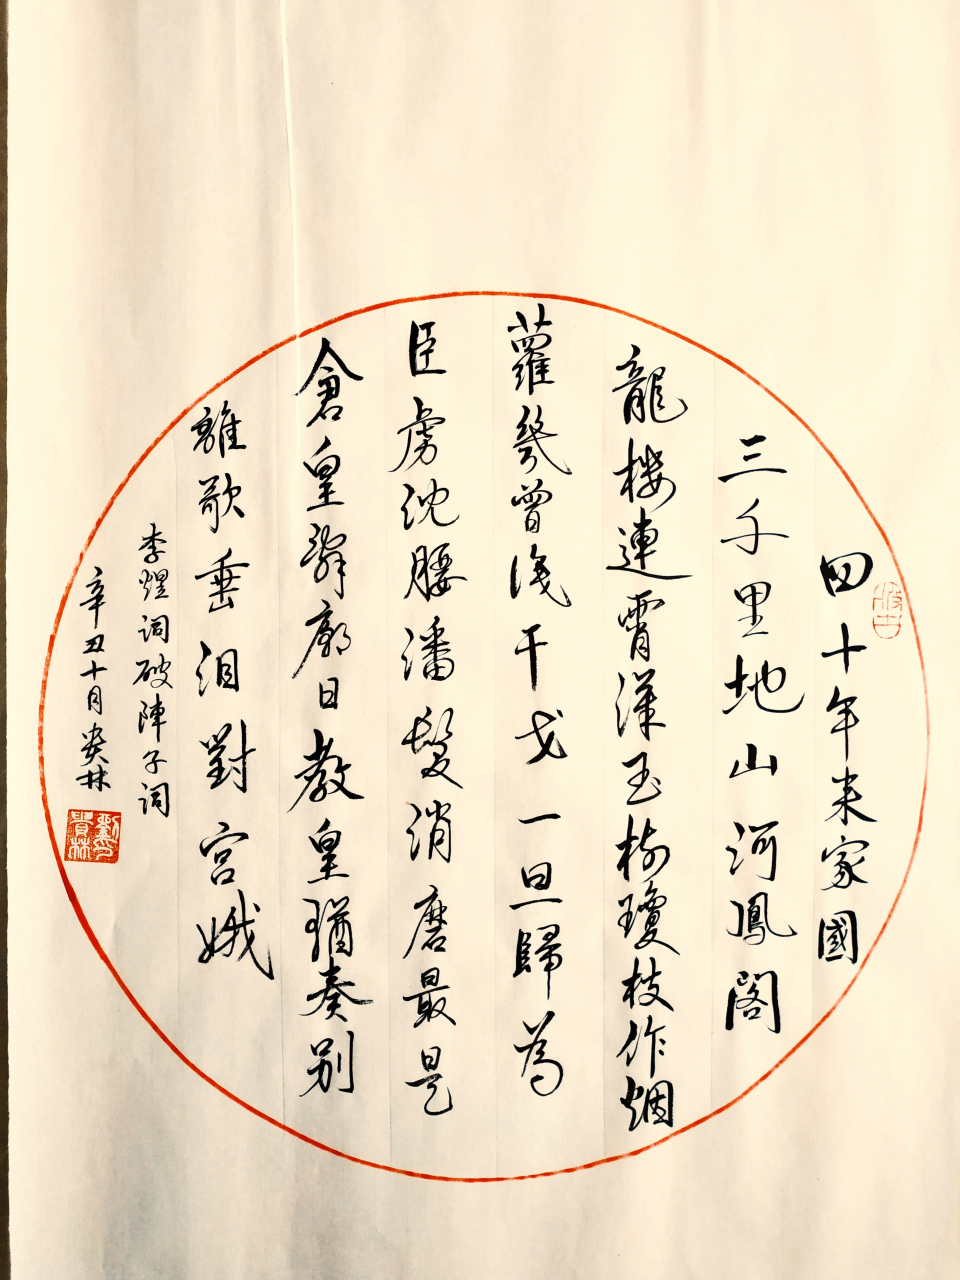 四十年来家國
三千里地山河鳳閣
龍楼連霄漢玉樹瓊枝作烟
蘿幾曾識干戈一旦歸為
臣虜沈腰潘鬢消磨最是
倉皇辭廟日教皇猶奏别
離歌垂泪對宮娥
李煜詞破陣子詞
辛丑十月贵林
劉貴林